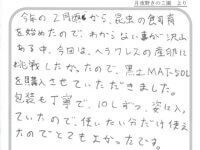 月夜野きのこ園 より
今年の二月頃から、昆虫の飼育
を始めたので、わからない事が沢山
ある中、今回は、ヘラクレスの産卵に
挑戦したかったので、黒土MAT50L
を購入させていただきました。
包装も丁寧で、10Lずつ、袋に入っ
ていたので、使いたい分だけ使え
たのでとてもよかったです。